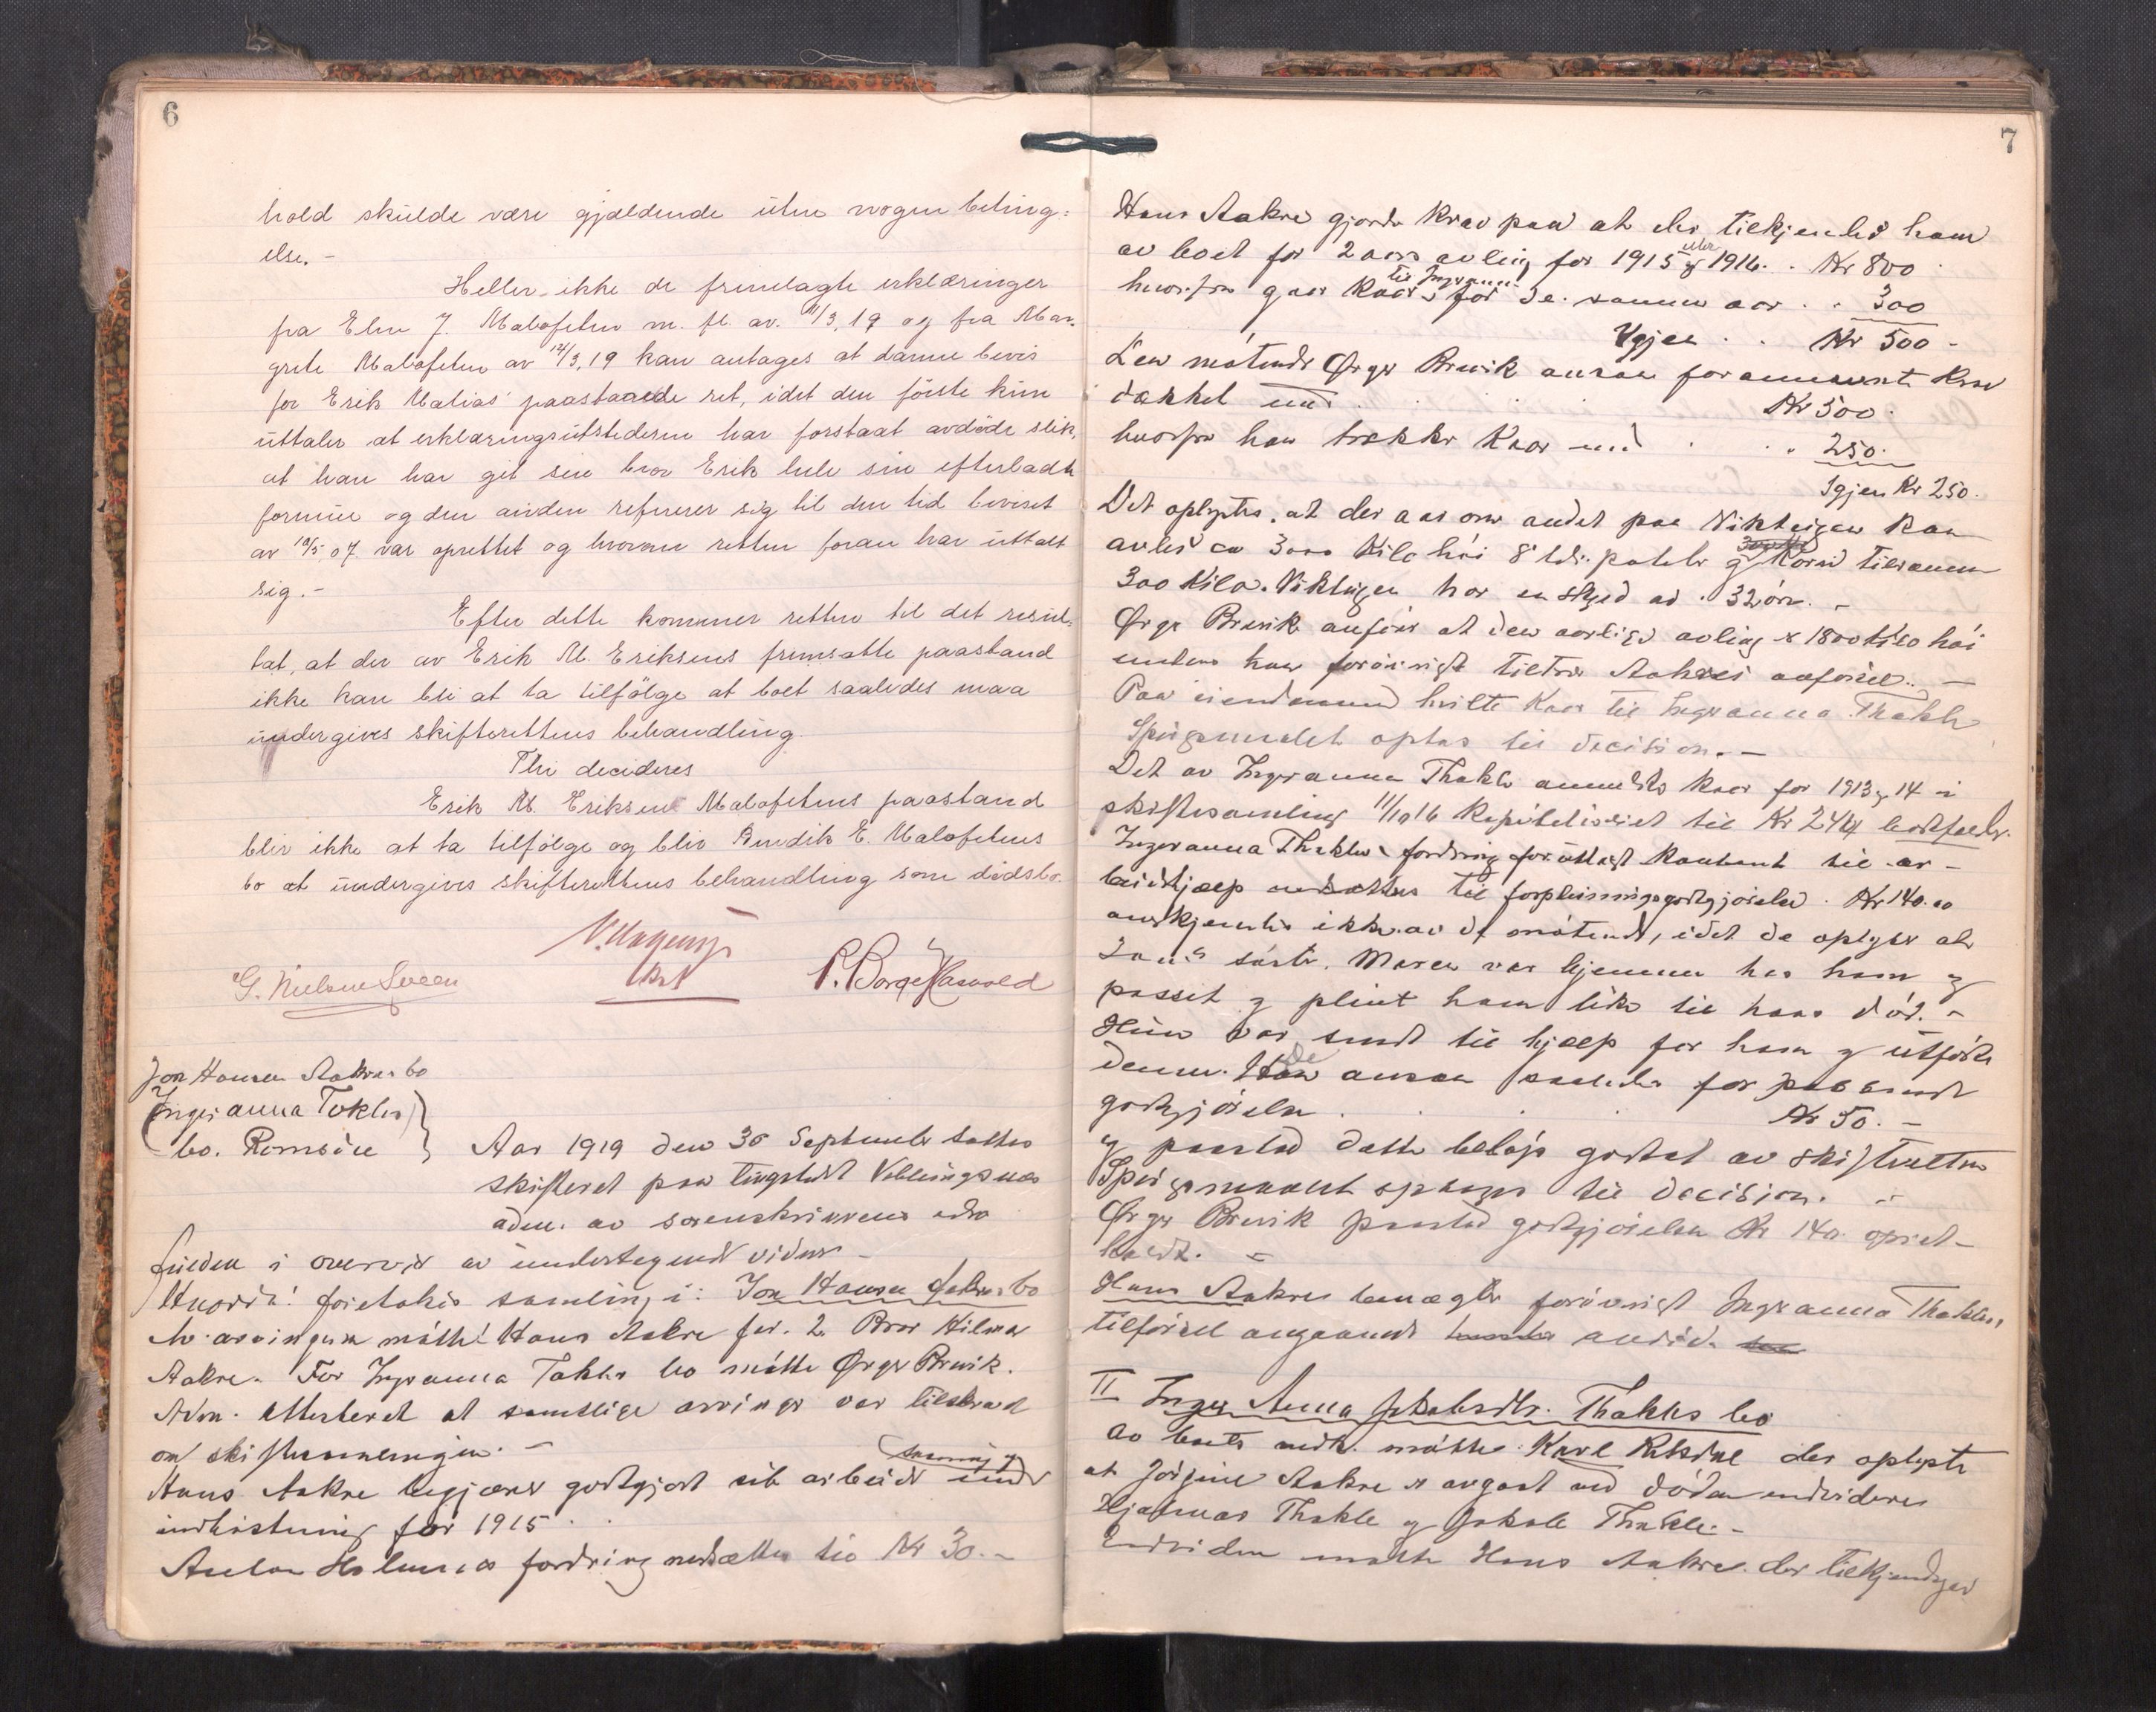 6
hold skulde være gjældende uten nogen beting=
else. -
Heller ikke de fremlagte erklæringer
fra Elen J. Malofeten m. fl. av 11/3, 19 og fra Mar-
grete Malofeten av 12/3, 19 kan antages at danne bevis
for Erik Matias' paastaaede ret, idet den første kun
uttaler at erklæringsutstederne har forstaat avdøde slik,
at han har git sin bror Erik hele sin efterladte
formue og den anden refererer sig til den tid beviset
av 10/5, 07 var oprettet og hvorom retten foran har uttalt
sig. -
Efter dette kommer retten til det resul-
tat, at den av Erik M. Eriksens fremsatte paastand
ikke kan bli at ta tilfølge at boet saaledes maa
undergives skifterettens behandling.
Thi decideres
Erik M. Eriksen Malofetens paastand
blir ikke at ta tilfølge og blir Bendik E. Malofetens
bo at undergives skifterettens behandling som dødsbo.
G. Nielsen Sveen
P. Borge Hasvold
Jon Hansen Aakres bo
Ingeranna Tokles
bo. Romsöen
Aar 1919 den 30 September sattes
skifteret paa tingstedet
adm. av sorenskriveren
i overvær av undertegnede vidner -
Hvorda! foretokes samling i: Jon Hansen Aakres bo
Av arvingerne mötte! Hans Aakre for. 2. Bror Hilmar
Aakre. For Ingeranna Tokles bo mötte Ørger Brevik.
Adm. attesteret at samtlige arvinger var tilstevnet
om skiftesamlingen. -
Hans Aakre begjærer godtgjort sit arbeide under
indhöstning for 1915 . .
Anton Holmens fordring nedsættes til Kr 30. -
7
Hans Aakre gjorde krav paa at der tilkjendes ham
av boet for 2 aars avling for 1915 og 1916 . . Kr 800
til Ingeranna
hvorfra gaar Kaar for de samme aar . . 300
Igjen . . Kr 500 -
Den mötende Ørger Brevik ansaa forannævnte krav
dækket med . . . Kr 500.
hvorfra han trækker Kaar med . . . 250.
Igjen Kr 250.
Det oplystes, at der aar om andet paa Vikteigen kan
avles ca 3000 Kilo höi 8 tdr. poteter og Korn tilsammen
300 Kilo. Vikteigen har en skyld av . 32 öre. -
Ørger Brevik anförer at den aarlige avling er 1800 Kilo höi
mens han forövrigt tiltrær Aakres anförsel. -
Paa eiendommen hvilte Kaar til Ingeranna Thakle
Spörgsmalet optas til decision. -
Det av Ingeranna Thakle anmeldte kaar for 1913 og 14 i
skiftesamling 11/10 16 Kapitaliseret til Kr 244 bortfalder.
Ingeranna Thakles fordring for utlagt kontant til ar-
beidshjælp nedsættes til forpleiningsgodtgjörelse . Kr 140.00
anerkjendes ikke av de mötende, idet de oplyser at
Jons söster Maren var hjemme hos ham og
passet og pleiet ham like til hans död. -
Hun var sendt til hjælp for ham og utförte
denne. De ansaa saaledes for passende
godtgjörelse . . . Kr 50. -
og paastod dette belöp godtat av skifteretten
Spörgsmaalet optages til decision. -
Ørger Brevik paastod godtgjörelsen Kr 140. opret-
holdt. -
Hans Aakre benægter forövrigt Ingeranna Thakles
tilförsel angaaende avdöd.
II Inger Anna Jakobsdtr. Thakles bo
Av boets vedk. mötte Karl der oplyste
at Jörgine Aakre er avgaat ved döden endvidere
Hjalmar Thakle og Jakob Thakle. -
Endvidere mötte Hans Aakre. der tilkjendegav